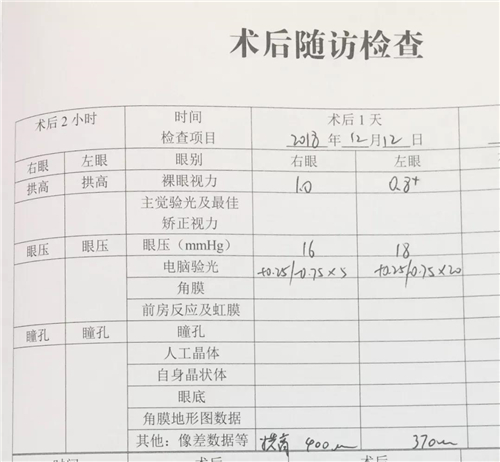 术后随访检查
术后 2 小时 时间 术后 1 天
检查项目 2018 年 12 月 12 日
右眼 左眼 眼别 右眼 左眼
拱高 拱高 裸眼视力 1.0 0.8+
主觉验光及最佳
矫正视力
眼压 眼压 眼压（mmHg） 16 18
电脑验光 +0.25/-0.75×5 +0.25/-0.75×20
角膜
前房反应及虹膜
瞳孔 瞳孔 瞳孔
人工晶体
自身晶状体
眼底
角膜地形图数据
其他：像差数据等 拱高 400um 370um